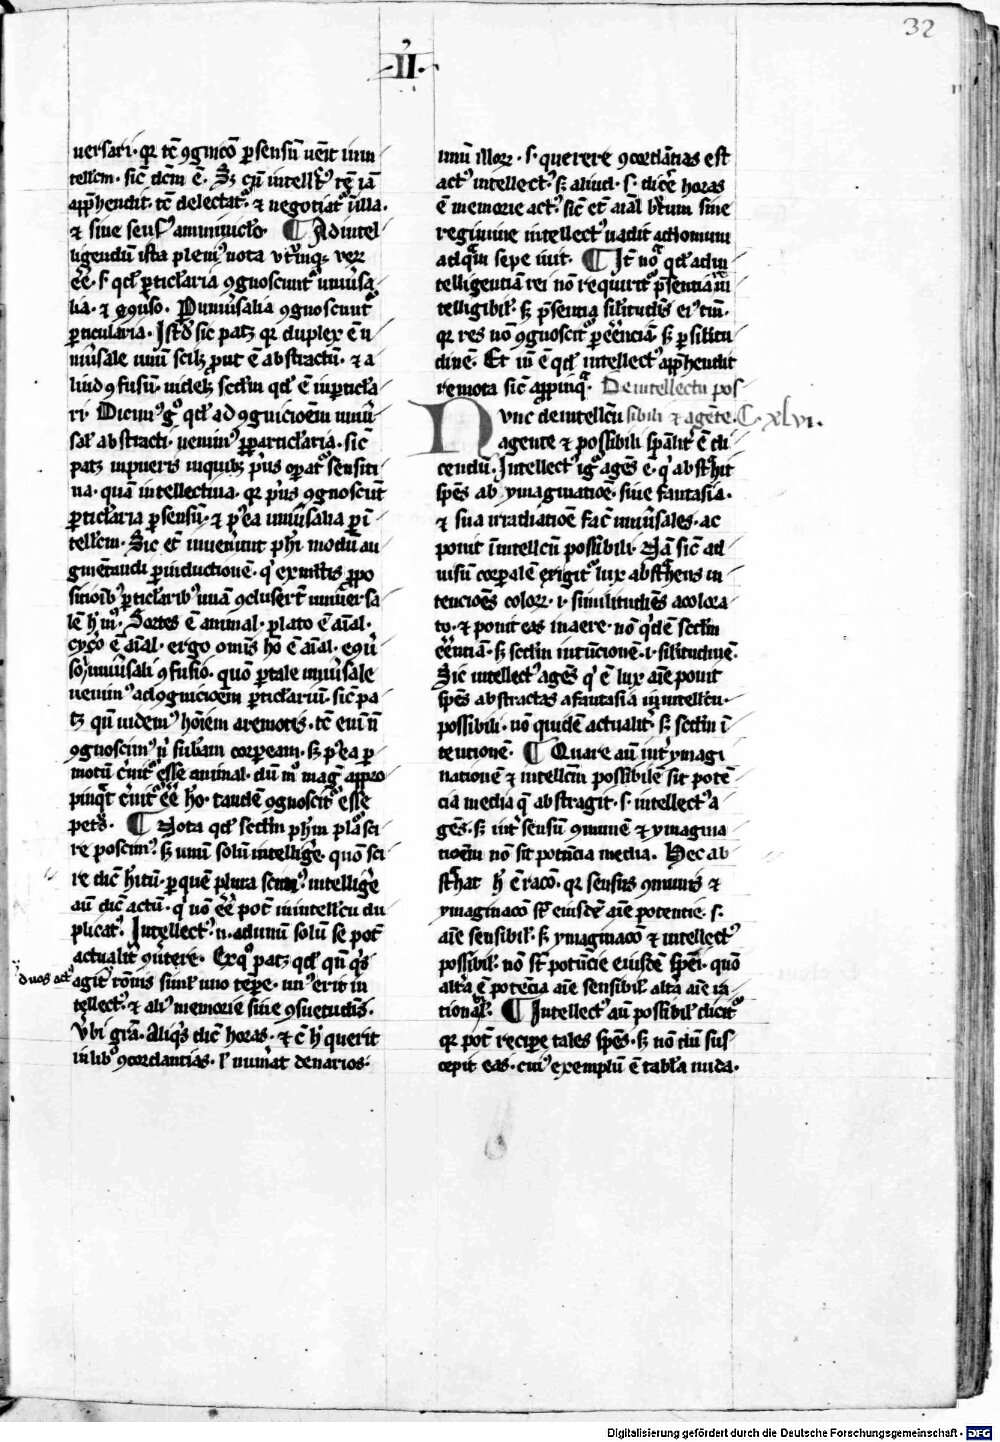 32
·II·
uersari· qr̄ tē ꝯgnicō p̱ sensū uēit ī nn
tellcm· sic̄ dc̄m ē· Sꝫ cū intellc̄tꝰ rē iā
app̄hendit· tē delectatᷣ· ⁊ negotiatᷣ ī illa·
⁊ siue sensꝰ aminiuclo· ¶ Ad intel
ligendū ista pleniꝰ nota vtrūqꝫ veꝝ
ēē· s· qd̓ p̱ticlaria ꝯgnoscunt᷑ p̱ uniūsa
lia· ⁊ eꝯuso· P̱ uniūsalia ꝯgnoscunt᷑
p̱ticularia· Istd̓ sic patꝫ qr̄ duplex ē u
niūsale unū scilꝫ prout ē abstractū· ⁊ a
liud ꝯfusū· uidelꝫ scd̓m qd̓ ē in p̱ticla
ri· Dicimꝰ gͦ qd̓ ad ꝯgnicioēm uniū
sal̓ abstracti· uenimꝰ p̱ particlaria· sic̄
patꝫ in pueris in quibꝫ pͥus oꝑat᷑ sensiti
ua· quā intellectiua· qr̄ pͥus ꝯgnoscūt
p̱ticlaria p̱ sensū· ⁊ p̱ ea uniūsalia p̱ ī
tellcm· Sic et̄ inueniūt phī modū au
gmētandi p̱ inductionē· qͥ ex mltis p̱po
sitioībꝰ p̱ticlaribꝰ unā ꝯcluserūt uniuersa
lē hͦ mͦ· Sortes ē animal· plato ē aīal·
cyc̓o ē aīal· ergo omīs hō ē aīal· eꝯū
so· uniūsali ꝯfuso· quō p̱ tale uniūsale
uenimꝰ ad ꝯgnicioēm p̱ticlariū· sic̄ pa
tꝫ qn̄ uidemꝰ hoīem a remotis· tē eni n̄
ꝯgnoscimꝰ nͥ subam corp̱eam· sꝫ p̱ ea p̱
motū c̓nit᷑ esse animal· dū mͦ magͥ appro
pinqͣt c̓nit᷑ ēē hō· tandē ꝯgnoscit᷑ esse
petrꝰ· ¶ Nota qd̓ scd̓m phm plͣa sci
re possimꝰ· sꝫ unū solū intelligͤe· quō sci
re dic̄ hītū· p̱ quē plura scimꝰ· intelligͤe
aū dic̄ actū· qͥ nō ēē pot̄ in intellcu du
plicatꝰ· Intellectꝰ n· ad unū solū se pot̄
actualit̓ ꝯūtere· Ex qͦ patꝫ qd̓ qn̄ qͥs
duos actꝰ
agit rōnis simul̓ uno tēpe· unꝰ erit in
tellectꝰ· ⁊ aliꝰ memorie siue ꝯsuetudīs·
Vbi grā· Aliqͥs dic̄ horas· ⁊ c̄ hͦ querit
in libͦ ꝯcordantias· l̓ nūat denarios·
unū illoꝝ· s· querere ꝯcordātias est
actꝰ intellectꝰ sꝫ aliud· s· dicͤe horas
ē memorie actꝰ· sic̄ et̄ aīal brutum sine
regimine intellectꝰ uadit ad domum
ad quā sepe iuit· ¶ It̄ noͣ qd̓ ad in
telligentiā rei nō requirit᷑ p̄sentia rei ī
telligibil̓· sꝫ p̄sentia silitudīs eiꝰ tm̄·
qr̄ res nō ꝯgnoscit᷑ p̱ ēēnciā· sꝫ p̱ silitu
dinē· Et iñ ē qd̓ intellectꝰ app̄hendit
remota sic̄ app̱inqͣ· De intellectu pos
Nunc de intellcu sibili ⁊ agēte· C· xlvi·
agente ⁊ possibili spālit̓ ē di
cendū· Intellectꝰ igͦ agēs ē· qͥ abstͣhit
spēs ab ymaginatiōe· siue fantasia·
⁊ sua irradiatiōe fac̄ uniūsales· ac
ponit ī intellcū possibili· Nā sic̄ ad
uisū corp̱alē exigit᷑ lux abstͣhens in
tencioēs coloꝝ· i· similitudīes a colora
to· ⁊ ponit eas in aere· nō qͥdē scd̓m
ēēntiā· sꝫ scd̓m intēcionē· i· silitudinē·
Sic intellectꝰ agēs qͥ ē lux aīe ponit
spēs abstractas a fantasia in intellcu·
possibili· nō quidē actualit̓· sꝫ scd̓m ī
tentionē· ¶ Quare aū int̓ ymagi
nationē ⁊ intellcm possibilē sit potē
cia media q̄ abstragit· s· intellectꝰ a
gēs· sꝫ int̓ sensū ꝯmunē ⁊ ymagina
tioēm nō sit potēcia media· Hec ab
stͣhat hͦ ē racō· qr̄ sensus ꝯmunis ⁊
ymaginacō st̄ eiusdē aīe potentie· s·
aīe sensibil̓· sꝫ ymaginacō ⁊ intellectꝰ
possibil̓· nō st̄ potēcie eiusdē spēi· quō
altͣa ē potēcia aīe sensibil̓ altͣa aīe ra
tional̓· ¶ Intellectꝰ aū possibil̓ dicit᷑
qr̄ pot̄ recip̱e tales spēs· sꝫ nō dū sus
cepit eas· cuiꝰ exemplū ē tabla nuda·
Digitalisierung gefördert durch die Deutsche Forschungsgemeinschaft - DFG